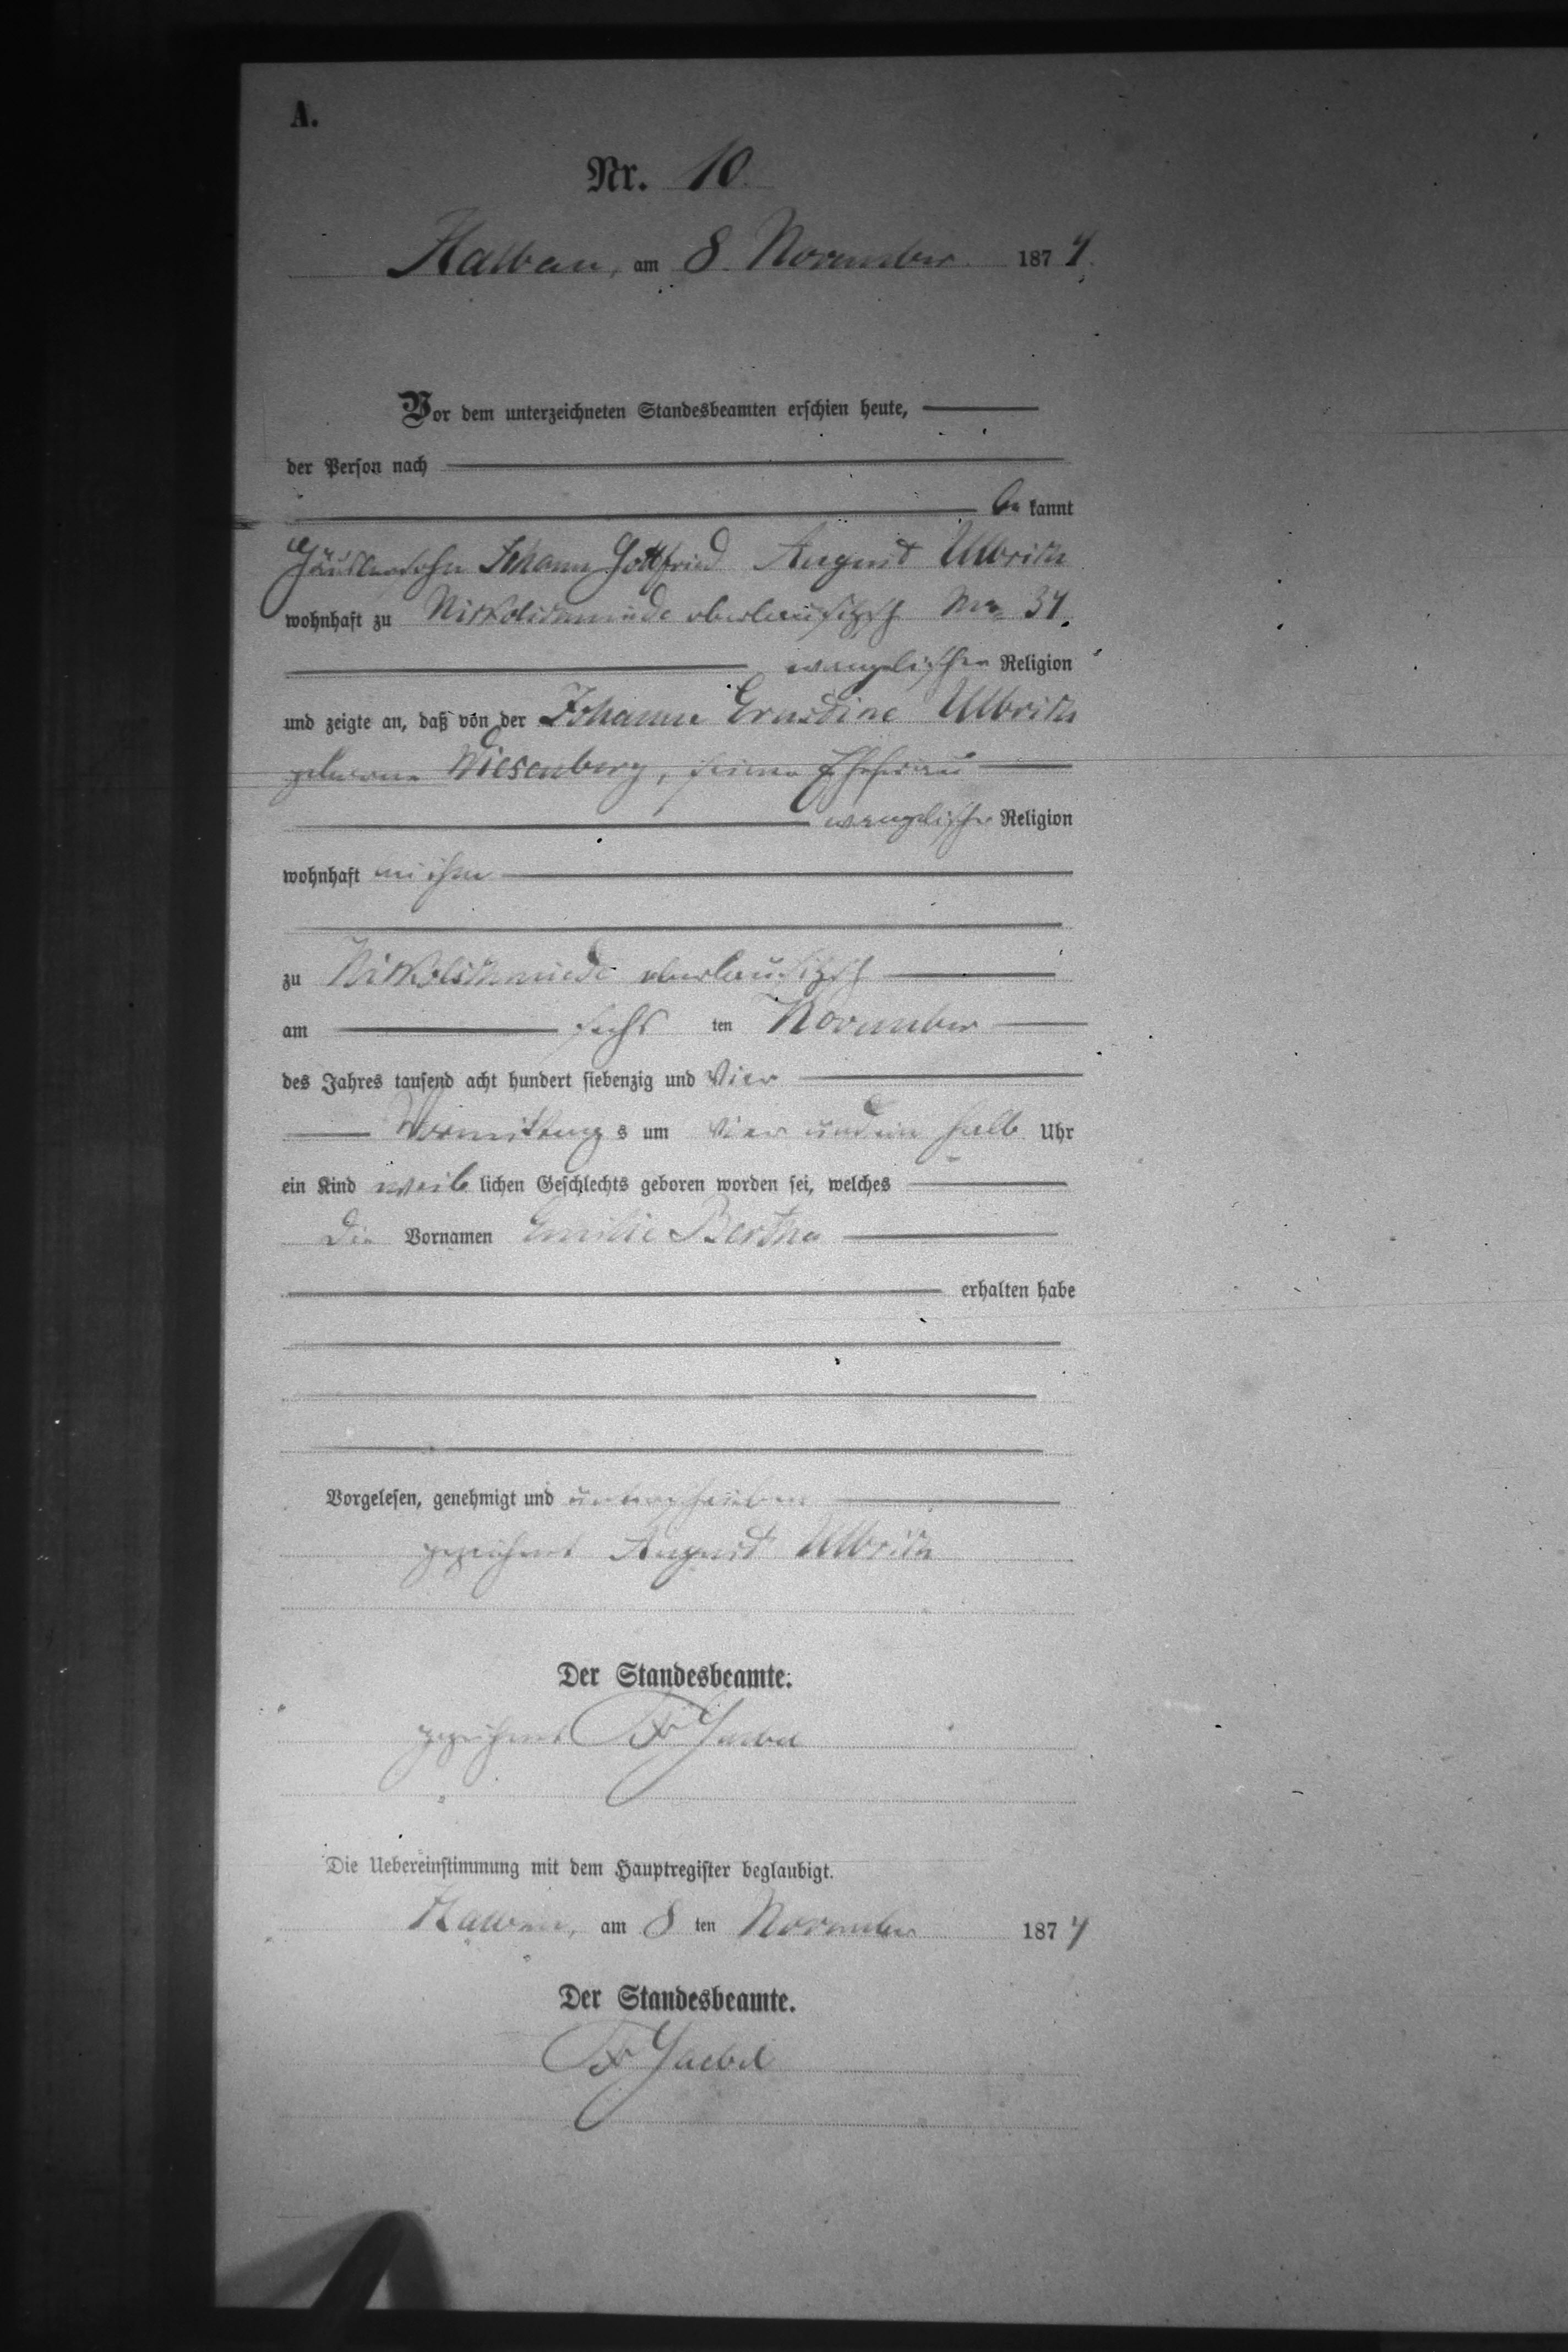 A.
Nr. 10.
Halbau, am 8. November 1874.
Vor dem unterzeichneten Standesbeamten erschien heute,
der Person nach
be kannt
Häuslersohn Johann Gottfried August Ulbrich
wohnhaft zu Nikolschmiede oberlausitzsch No 34,
evangelischer Religion
und zeigte an, daß von der Johanne Ernestine Ulbrich
geborene Wiesenberg, seiner Ehefrau
evangelischer Religion
wohnhaft bei ihm
zu Nikolschmiede oberlausitzsch
am sechs ten November
des Jahres tausend acht hundert siebenzig und vier
Vormittag s um vier und ein halb Uhr
ein Kind weib lichen Geschlechts geboren worden sei, welches
die Vornamen Emilie Bertha
erhalten habe
Vorgelesen, genehmigt und unterschrieben
gezeichnet August Ulbrich
Der Standesbeamte.
gezeichnet
Die Uebereinstimmung mit dem Hauptregister beglaubigt.
Halbau, am 8 ten November 1874
Der Standesbeamte.